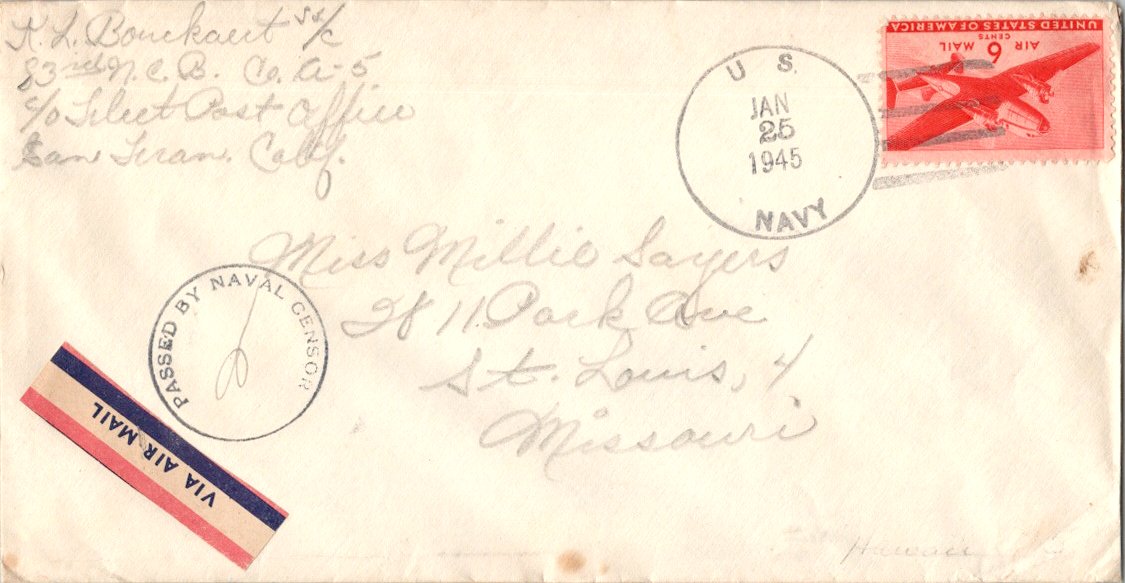 K. L. Bouckaert S 1/c
83rd N.C.B. Co. A-5
c/o Fleet Post Office
San Fran. Calif.
U S
JAN
25
1945
NAVY
UNITED STATES OF AMERICA
AIR 6 MAIL
CENTS
Miss Millie Sayers
2811 Park Ave
St. Louis, 4
Missouri
PASSED BY NAVAL CENSOR
VIA AIR MAIL